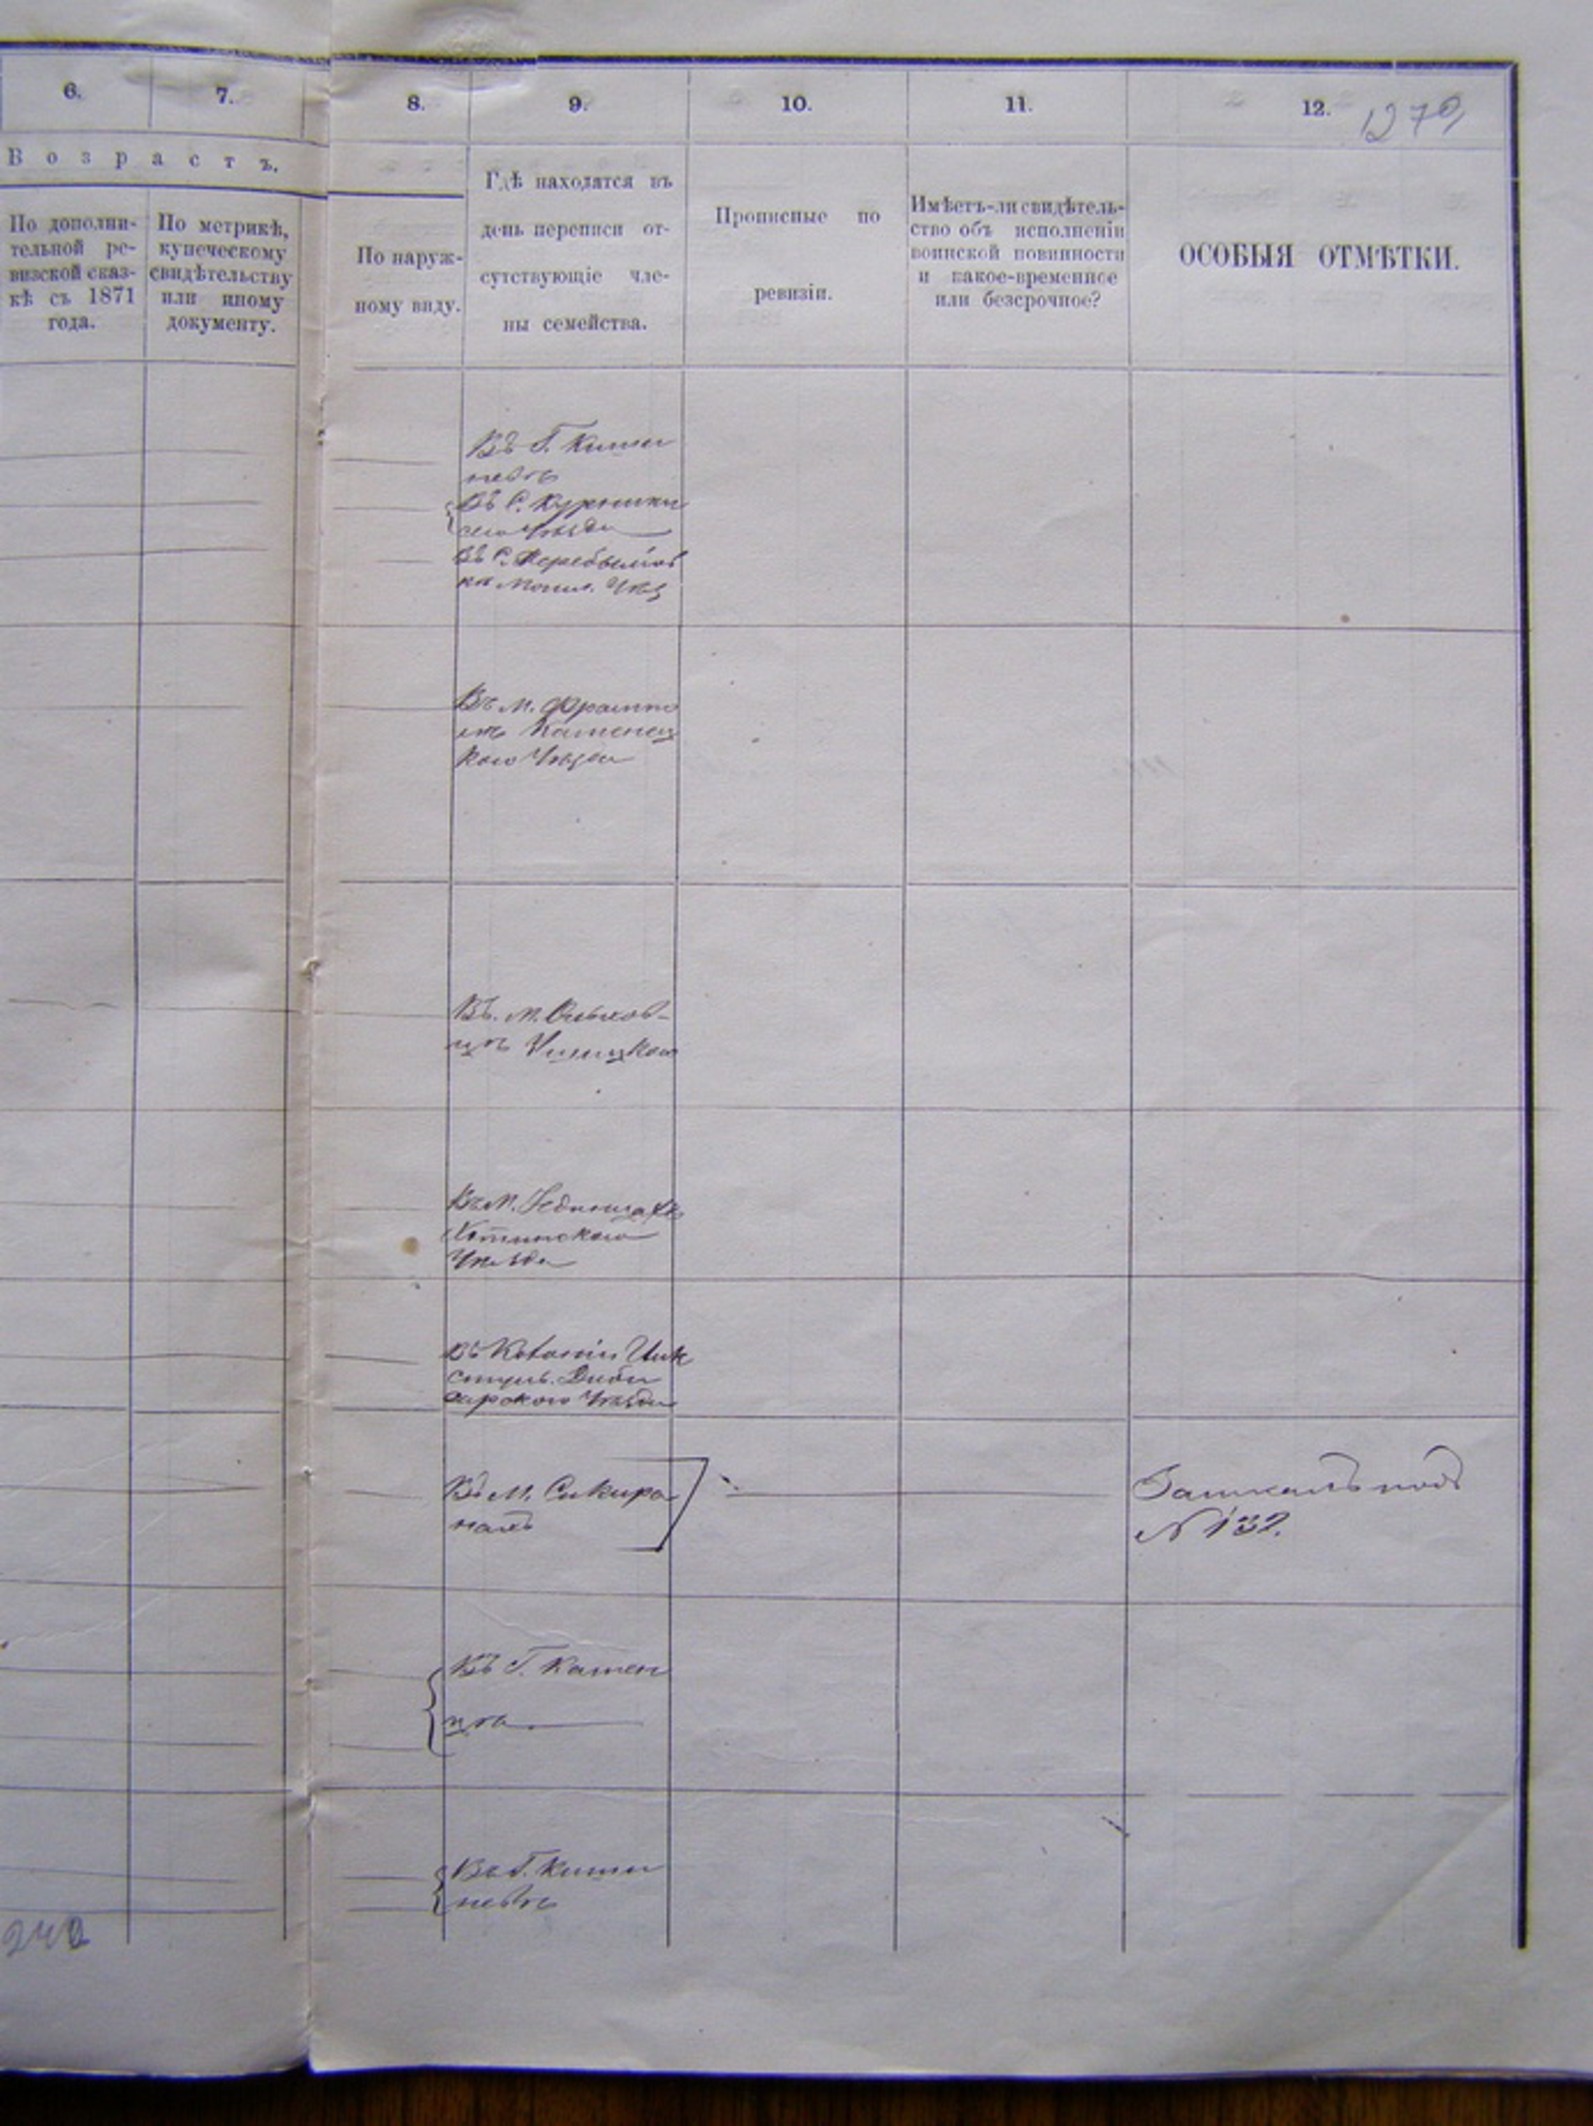 6.
7.
8.
9.
10.
11.
12.
1279
Возрастъ.
По дополни-
тельной ре-
визской сказ-
кѣ съ 1871
года.
По метрикѣ,
купеческому
свидѣтельству
или иному
документу.
По наруж-
ному виду.
Гдѣ находятся въ
день переписи от-
сутствующіе чле-
ны семейства.
Прописные по
ревизіи.
Имѣетъ-ли свидѣтель-
ство объ исполненіи
воинской повинности
и какое-временное
или безсрочное?
ОСОБЫЯ ОТМѢТКИ.
Въ Г. Киши
невѣ
Въ С.
Уѣзда
Въ С.
Могил. Уѣз
Въ м. Фрампо
лѣ Каменец
кого Уѣзда
Въ м.
цѣ Ушицкого
Въ М. Единцахъ
Хотинского
Уѣзда
Въ Колоніи
Уѣзда
Въ М. Сикура
нахъ
Записанъ подъ
N 132.
Въ Г. Камен
цѣ
Въ Г. Киши
невѣ
240